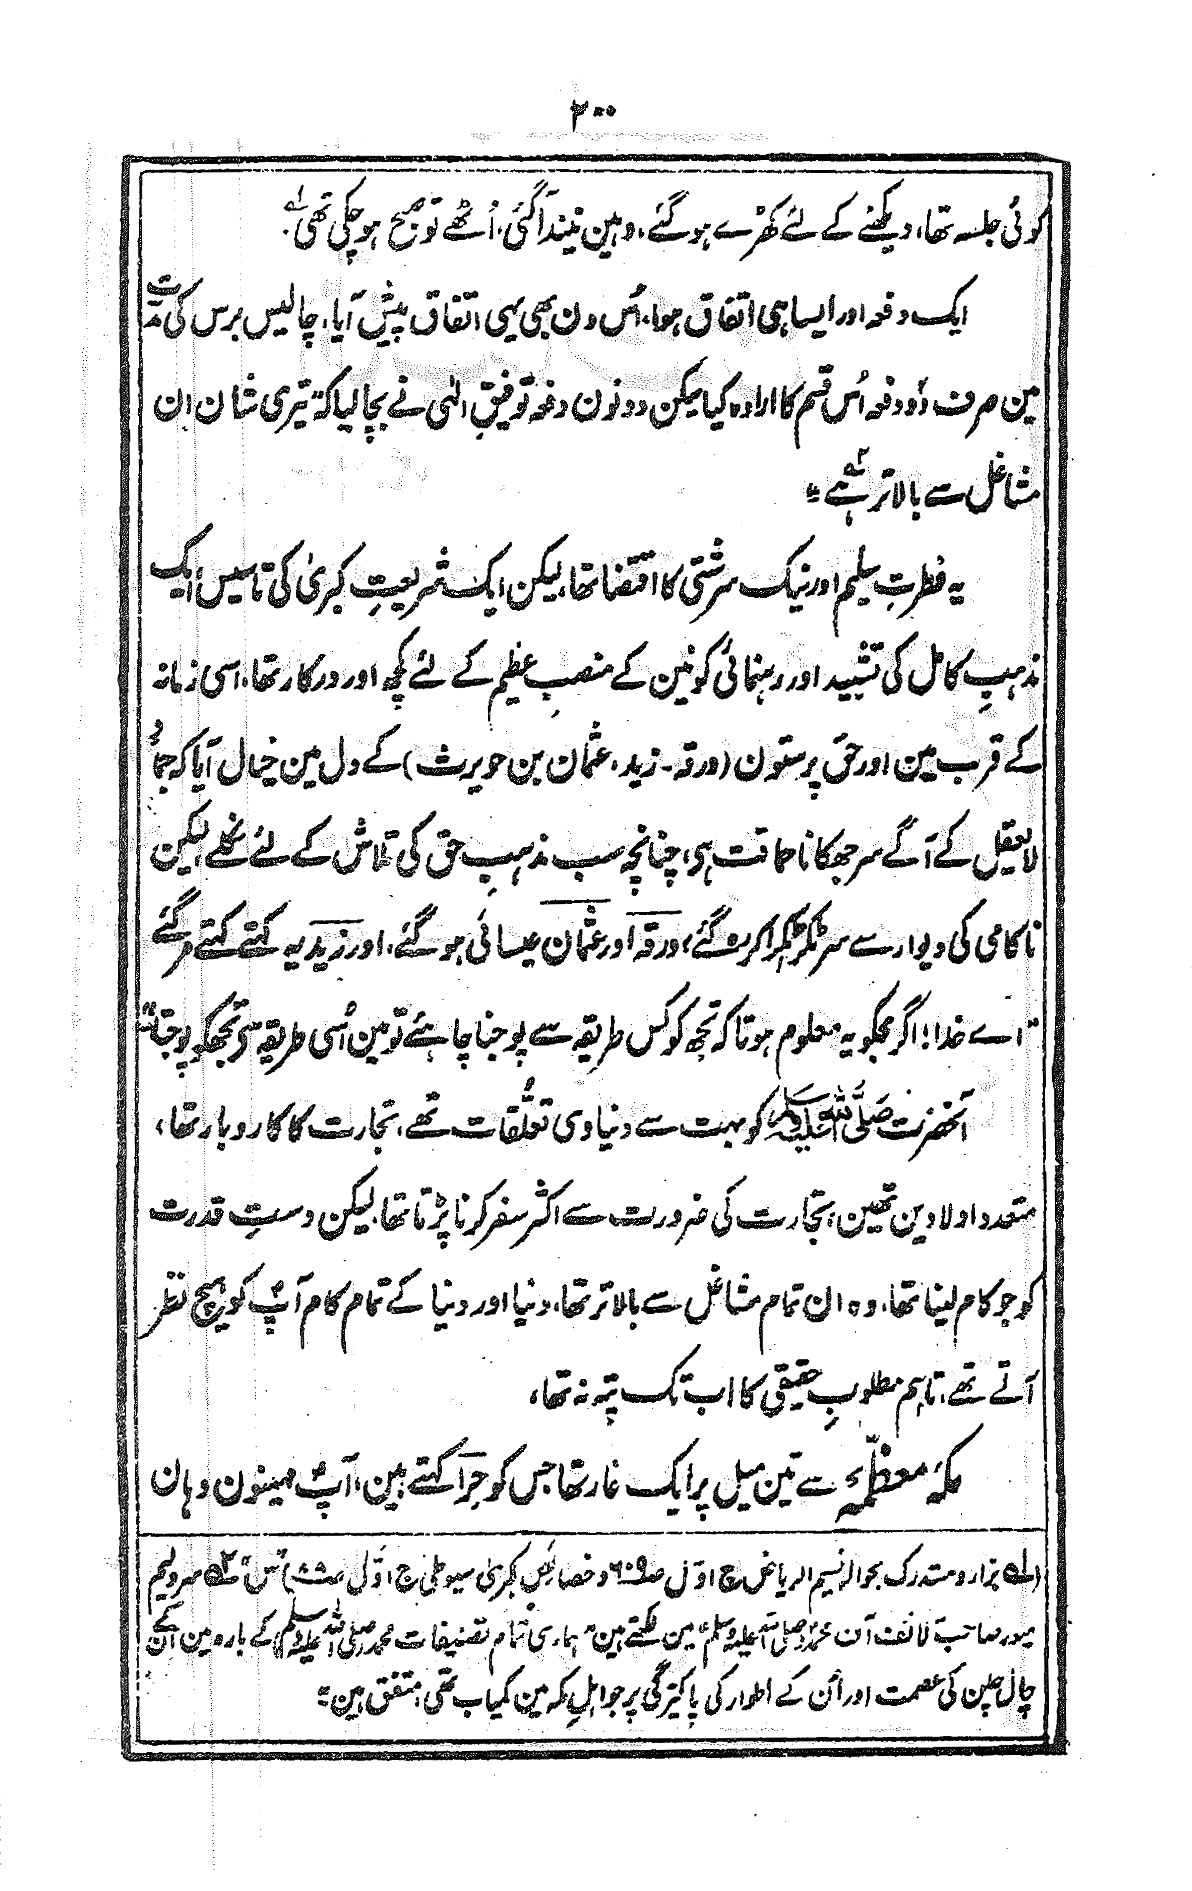 ۲۰۰
کوئی جلسہ تھا، دیکھنے کے لئے کھڑے ہوگئے، وہین نیند آگئی، اُٹھے تو صبح ہوچکی تھی لہ۔
ایک دفعہ اور ایسا ہی اتفاق ہوا، اُس دن بھی یہی اتفاق پیش آیا، چالیس برس کی مدت
مین صرف دو دفعہ اُس قسم کا ارادہ کیا لیکن دونون دفعہ توفیقِ الٰہی نے بچالیا کہ "تیری شان ان
مشاغل سے بالاتر ہے ۲ہ"
یہ فطرتِ سلیم اور نیک سرشتی کا اقتضا تھا، لیکن ایک شریعتِ کبریٰ کی تاسیس ایک
مذہبِ کامل کی تشیید اور رہنمائی کونین کے منصبِ عظیم کے لئے کچھ اور درکار تھا، اسی زمانہ
کے قرب مین اور حق پرستون (ورقہ۔ زید، عثمان بن حویرث) کے دل مین خیال آیا کہ جمادِ
لایعقل کے آگے سر جھکانا حماقت ہی، چنانچہ سب مذہبِ حق کی تلاش کے لئے نکلے، لیکن
ناکامی کی دیوار سے سر ٹکرا ٹکرا کر رہ گئے، ورقہ اور عثمان عیسائی ہوگئے، اور زید یہ کہتے کہتے مرگئے
"اے خدا! اگر مجکو یہ معلوم ہوتا کہ تجھ کو کس طریقہ سے پوجنا چاہئے تو مین اُسی طریقہ سی تجھکو پوجتا"
آنحضرت صلی اللہ علیہ وسلم کو بہت سے دنیاوی تعلّقات تھے، تجارت کا کاروبار تھا،
متعدد اولادین تھین، تجارت کی ضرورت سے اکثر سفر کرنا پڑتا تھا، لیکن دستِ قدرت
کو جو کام لینا تھا، وہ ان تمام مشاغل سے بالاتر تھا، دنیا اور دنیا کے تمام کام آپؐ کو ہیچ نظر
آتے تھے، تاہم مطلوبِ حقیقی کا اب تک پتہ نہ تھا،
مکۂ معظّمہ سے تین میل پر ایک غار تھا جس کو حرا کہتے ہین، آپؐ مہینون وہان
(لہ بزار و مستدرک بحوالہ نسیم الریاض ج اوّل ص ۶۰۹ و خصائص کبریٰ سیوطی ج اوّل ص ۸۸) "س" ۲ہ سر ولیم
میور صاحب لائف آف محمد صلی اللہ علیہ وسلم مین لکھتے ہین "ہماری تمام تصنیفات محمد (صلی اللہ علیہ وسلم) کے بارہ مین اُنکے
چال چلن کی عصمت اور اُن کے اطوار کی پاکیزگی پر جو اہلِ مکہ مین کمیاب تھی، متفق ہین"